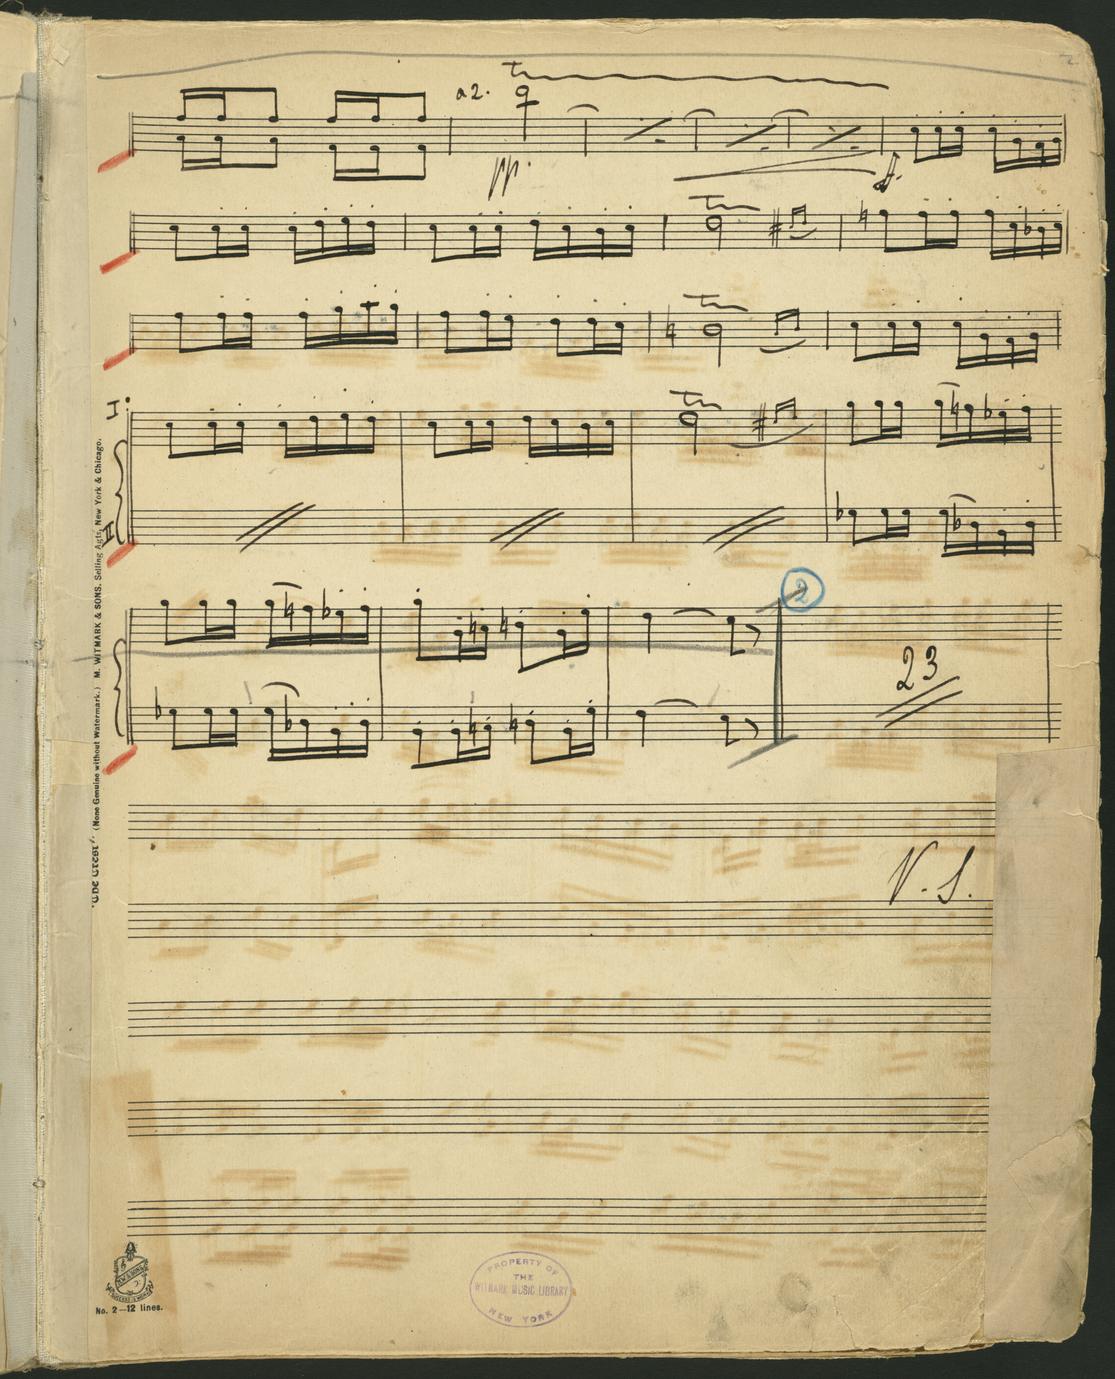 2
tr
a2.
pp.
ff.
tr
tr
I
tr
II
2
23
V. S.
"The Crest" (None Genuine without Watermark.) M. WITMARK & SONS, Selling Agts, New York & Chicago.
PROPERTY OF
THE
WITMARK MUSIC LIBRARY
NEW YORK
No. 2—12 lines.